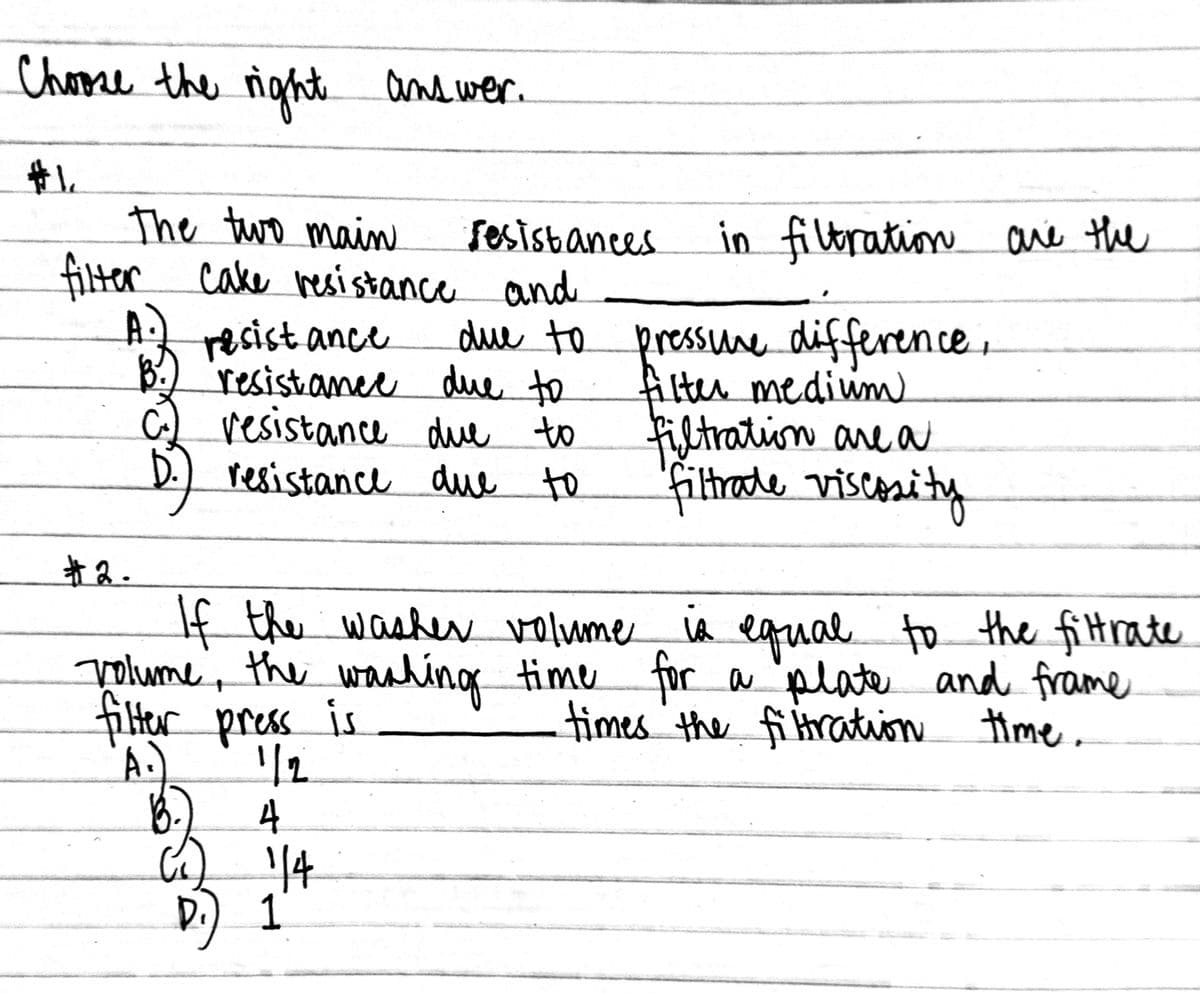 Choose the right answer.
#1.
The two main resistances in filtration are the
filter cake resistance and ________.
A.) resistance due to pressure difference,
B.) resistance due to filter medium
C.) resistance due to filtration area
D.) resistance due to filtrate viscosity
#2.
If the washer volume is equal to the filtrate
volume, the washing time for a plate and frame
filter press is ________ times the filtration time.
A.) 1/2
B.) 4
C.) 1/4
D.) 1